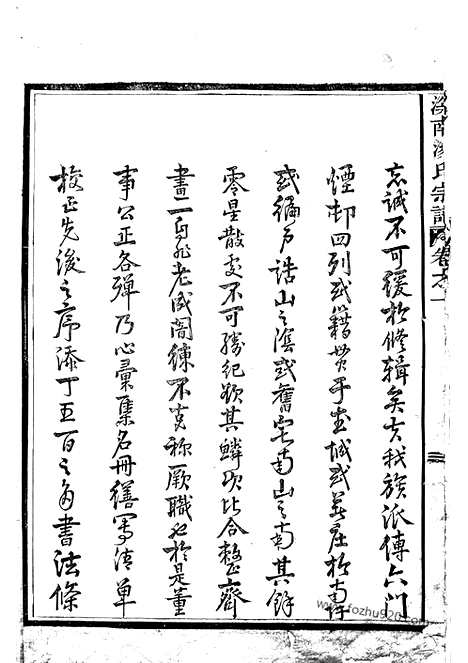 忘誠不可緩於修輯矣夫我族派傳六門
煙邨四列或籍貫乎城或莊於南
或編戶諸山之濱或舊宅南山之南其餘
零星散處不可勝紀欲其鱗次比合整齊
畫一自非老成闇練不克称厥職也於是董
事公正各彈乃心彙集名冊繕写清單
校正先後之序添丁五百之多書法條
南氏宗譜 卷之一
www.fozhu920.com